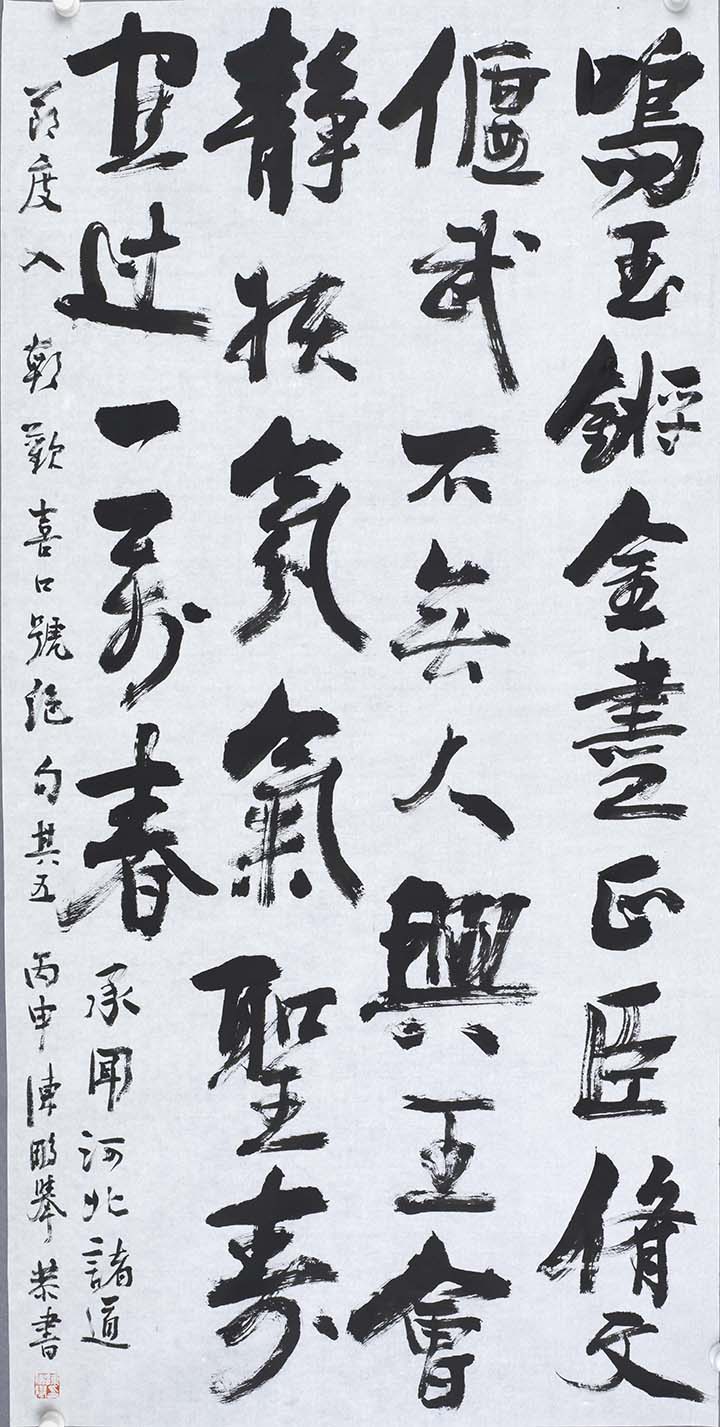 鳴玉鏘金盡正臣脩文
偃武不無人興王會
靜祅氛氣聖壽
宜過一萬春 承聞河北諸道
節度入朝歡喜口號絕句其五 丙申陳鵬舉恭書